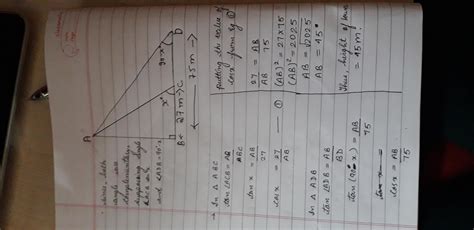 • since, both
angle are
complementary.
supposing angle
ACB = x°
and ∠ADB = 90° - x°
A
x°
90-x°
B ← 27 m → C
D
← 75 m →
→ In △ ABC
tan ∠ACB = AB
BC
tan x = AB
27
cot x = 27 — ①
AB
In △ ADB
tan ∠ADB = AB
BD
tan (90°-x) = AB
75
cot x = AB
75
putting the value of
cot x from eq ①
27 = AB
AB 75
(AB)² = 27×75
(AB)² = 2025
AB = √2025
AB = 45°
Thus, height of tower
= 45 m.